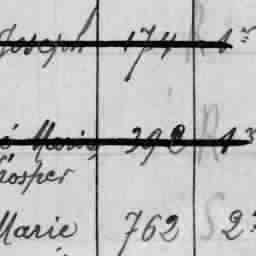 Joseph 174 R 1
é Marie 392 R 1
Prosper
Marie 762 S 2